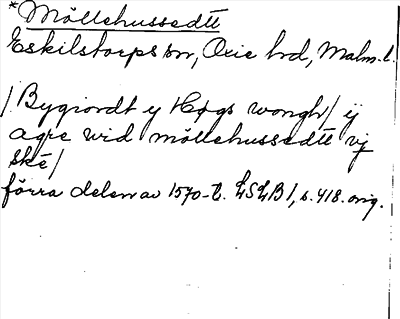 *Möllehussedtt
Eskilstorps sn, Oxie hd, Malm. l.
/Bygiordt y Høgs wongh/ ij
agre wid möllehussedtt vij
ske/
förra delen av 1570-t. LSLB 1, s. 418. orig.